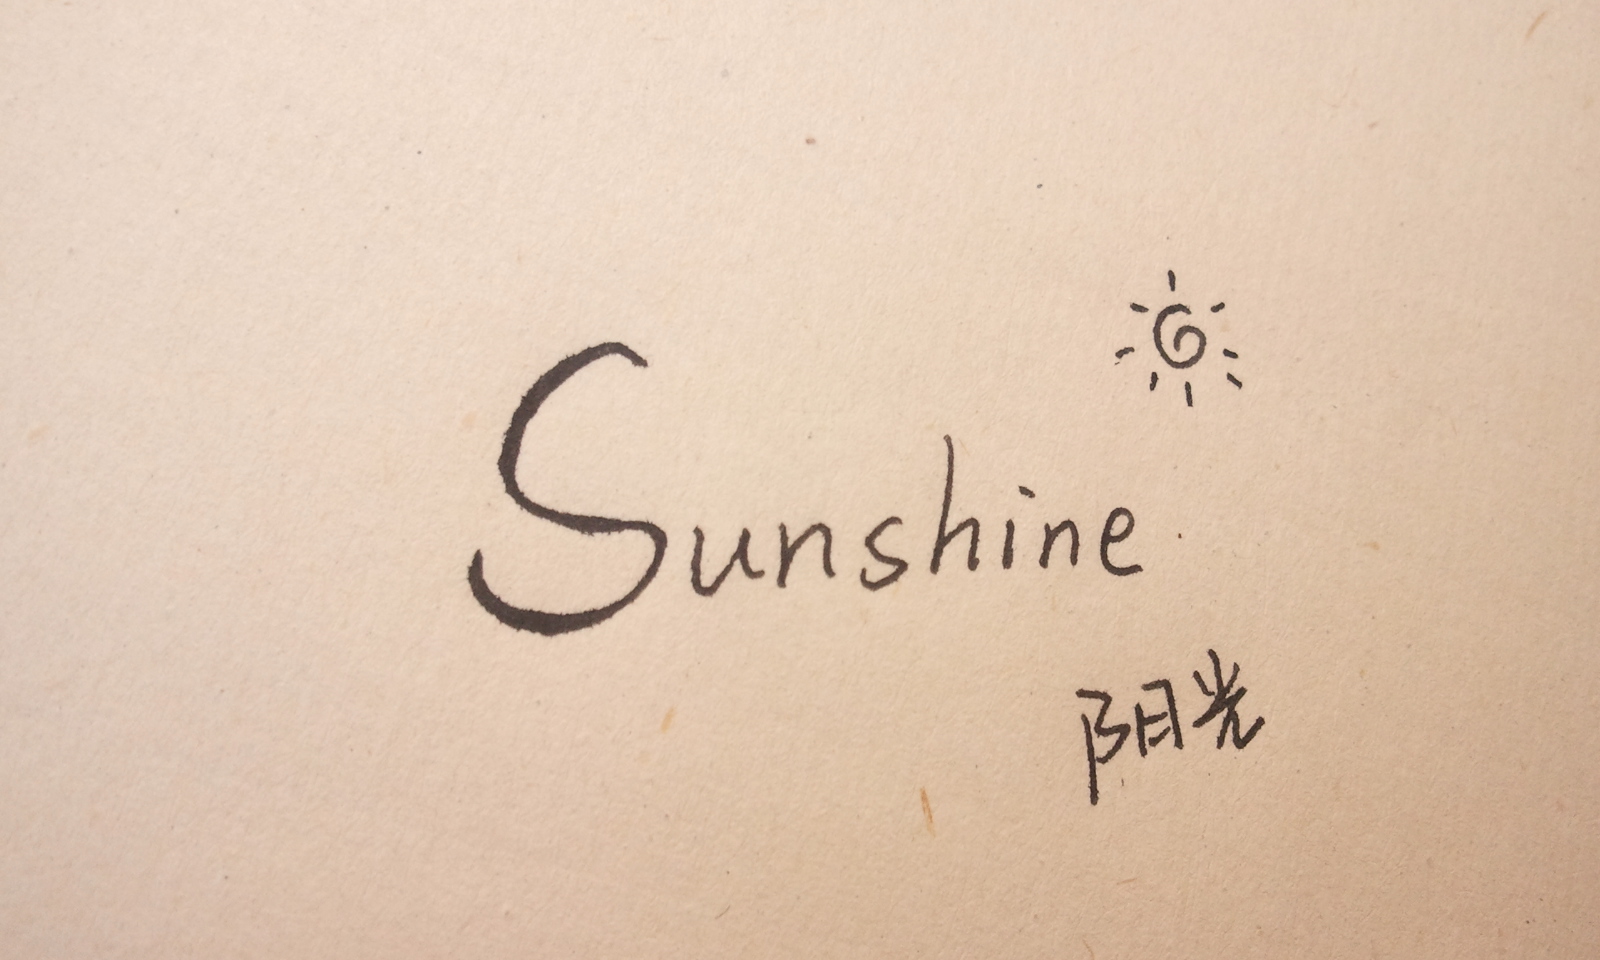 Sunshine
阳光